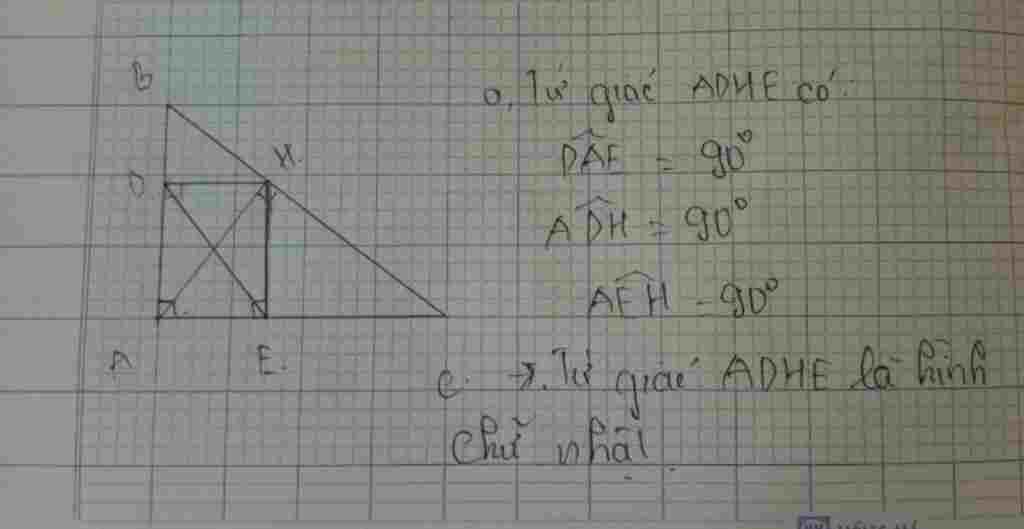 B
H.
D
A
E.
C.
a, Tứ giác ADHE có:
DAE = 90°
ADH = 90°
AEH = 90°
→. Tứ giác ADHE là hình
chữ nhật.